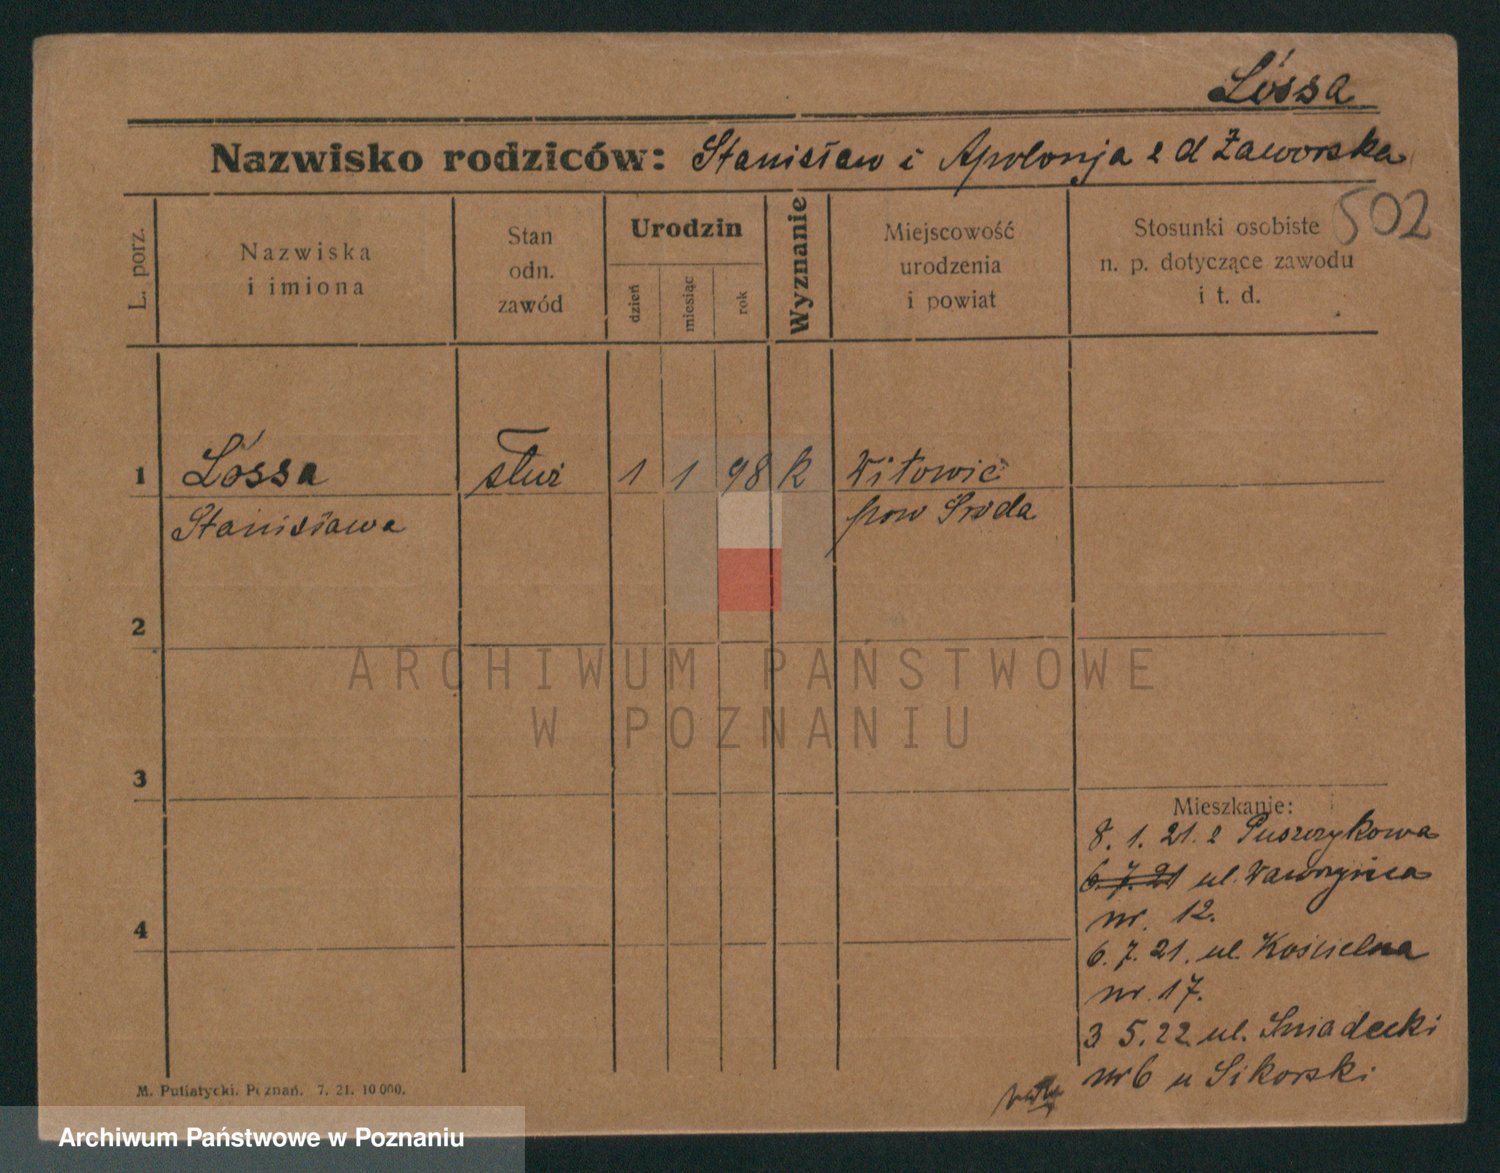 Lóssa
Nazwisko rodziców: Stanisław i Apolonja z d Zaworska
502
L. porz.
Nazwiska
i imiona
Stan
odn.
zawód
Urodzin
dzień
miesiąc
rok
Wyznanie
Miejscowość
urodzenia
i powiat
Stosunki osobiste
n. p. dotyczące zawodu
i t. d.
1 Lóssa służ 1 1 98 k Witowic
Stanisława pow Sroda
2
3
4
Mieszkanie:
8. 1. 21. z Puszczykowa
6. 7. 21 ul. Wawrzyńca
nr. 12.
6. 7. 21. ul. Kościelna
nr. 17.
3 5. 22 ul. Sniadecki
nr 6 u Sikorski
M. Putiatycki. Poznań. 7. 21. 10 000.
ARCHIWUM PAŃSTWOWE
W POZNANIU
Archiwum Państwowe w Poznaniu